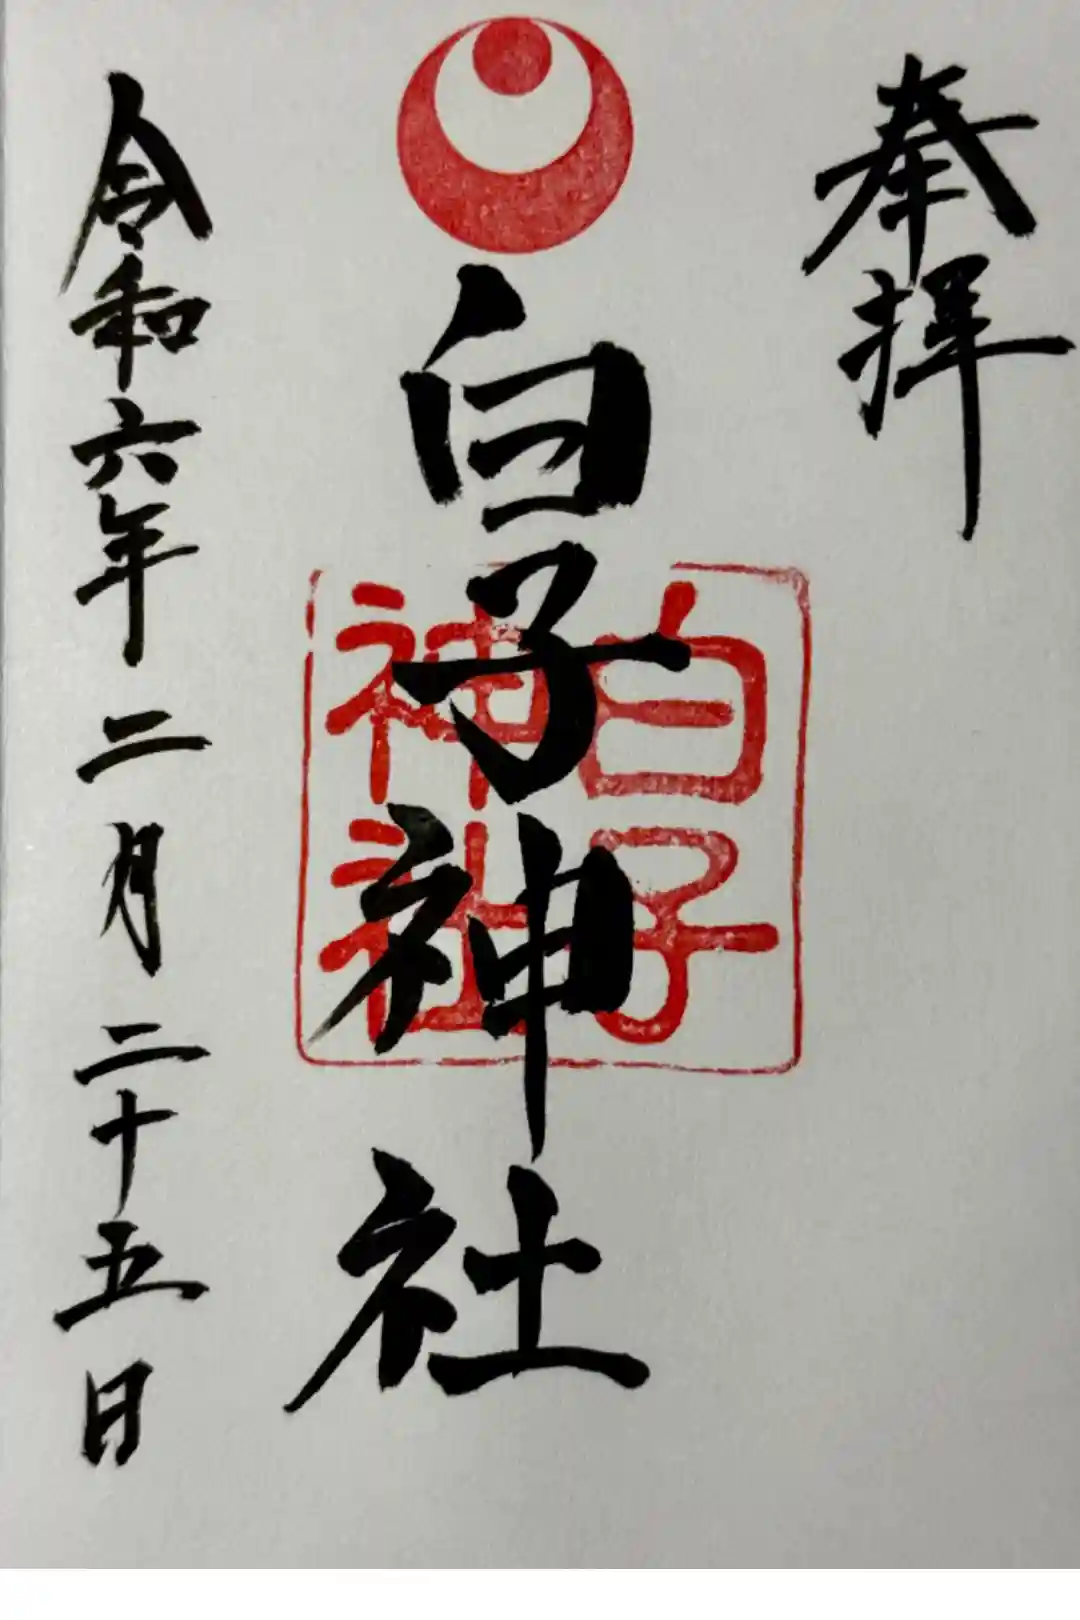 奉拝
白子神社
白子
神社
令和六年二月二十五日